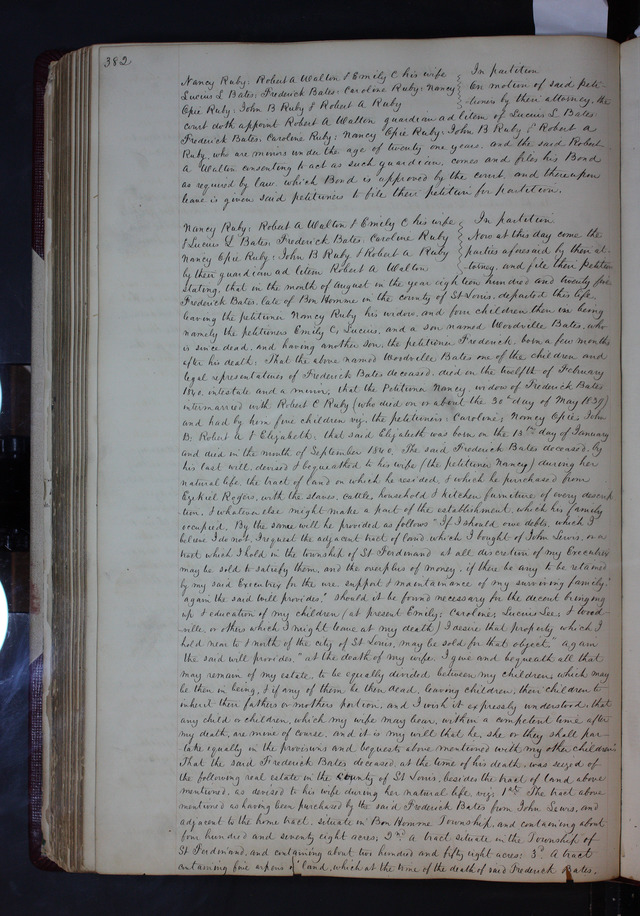 382
Nancy Ruby: Robert A Walton & Emily C his wife
Lucius L Bates: Frederick Bates: Caroline Ruby: Nancy
Opie Ruby: John B Ruby & Robert A Ruby
In partition
On motion of said peti-
tioners by their attorney, the
court doth appoint Robert A Walton guardian ad litem of Lucius L. Bates:
Frederick Bates: Caroline Ruby: Nancy Opie Ruby: John B Ruby & Robert A
Ruby, who are minors under the age of twenty one years, and the said Robert
A Walton consenting to act as such guardian, comes and files his Bond
as required by law, which Bond is approved by the court, and thereupon
leave is given said petitioners to file their petition for partition.
Nancy Ruby: Robert A Walton & Emily C his wife
& Lucius L Bates, Frederick Bates, Caroline Ruby
Nancy Opie Ruby: John B Ruby & Robert A Ruby
by their guardian ad litem Robert A Walton
In partition
Now at this day come the
parties aforesaid by their at-
torney, and file their petition
stating, that in the month of August in the year eighteen hundred and twenty five
Frederick Bates, late of Bon Homme in the county of St Louis, departed this life
leaving the petitioner Nancy Ruby his widow, and four children then in being
namely the petitioners Emily C, Lucius, and a son named Woodville Bates, who
is since dead, and having another son, the petitioner Frederick, born a few months
after his death: That the above named Woodville Bates one of the children and
legal representatives of Frederick Bates deceased, died on the twelfth of February
1840, intestate and a minor; that the Petitioner Nancy, widow of Frederick Bates
intermarried with Robert C Ruby (who died on or about the 30th day of May 1839)
and had by him five children viz. the petitioners: Caroline; Nancy Opie; John
B; Robert A & Elizabeth: that said Elizabeth was born on the 13th day of January
and died in the month of September 1840. The said Frederick Bates deceased, by
his last will, devised & bequeathed to his wife (the petitioner Nancy) during her
natural life, the tract of land on which he resided, & which he purchased from
Ezekiel Rogers, with the slaves, cattle, household & kitchen furniture of every descrip
tion, & whatever else might make a part of the establishment, which his family
occupied. By the same will he provided as follows "If I should owe debts, which I
believe I do not, I request the adjacent tract of land which I bought of John Sewrs, or a
tract which I hold in the township of St Ferdinand at all discretion of my Executrix
may be sold to satisfy them, and the overplus of money, if there be any to be retained
by my said Executrix for the use, support & maintainance of my surviving family."
again the said will provides, "should it be found necessary for the decent bringing
up & education of my children (at present Emily; Caroline; Lucius Lee; & Wood-
ville, or others which I might leave at my death) I desire that property which I
hold near to & north of the city of St Louis, may be sold for that object," again
the said will provides, "at the death of my wife, I give and bequeath all that
may remain of my estate, to be equally divided between my children, which may
be then in being, & if any of them be then dead, leaving children, their children to
inherit their fathers or mothers portion, and I wish it expressly understood, that
any child or children, which my wife may bear, within a competent time after
my death, are mine of course, and it is my will that he, she or they shall par-
take equally in the provisions and bequests above mentioned with my other children."
That the said Frederick Bates deceased, at the time of his death, was seized of
the following real estate in the county of St Louis, besides the tract of land above
mentioned, as devised to his wife during her natural life, viz: 1st The tract above
mentioned as having been purchased by the said Frederick Bates from John Sewrs, and
adjacent to the home tract, situate in Bon Homme Township, and containing about
four hundred and seventy eight acres; 2nd A tract situate in the Township of
St. Ferdinand, and containing about two hundred and fifty eight acres: 3d A tract
containing five arpens of land, which at the time of the death of said Frederick Bates,